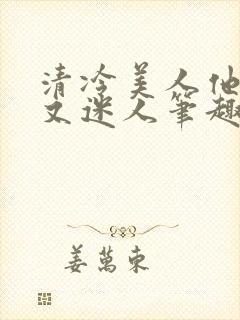 清冷美人他
又迷人笔趣
姜萬東